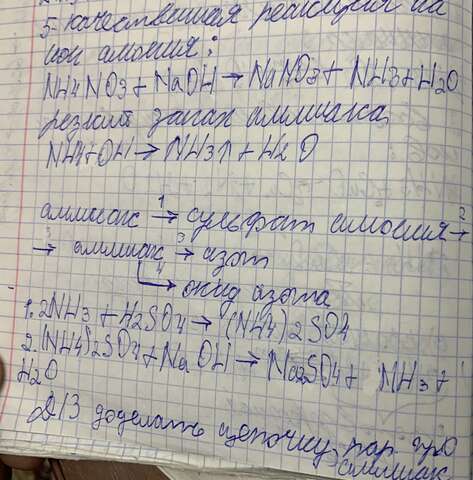 5. качественная реакция на
ион амония:
NH4NO3 + NaOH → NaNO3 + NH3 + H2O
резкий запах аммиака
NH4+OH → NH3↑ + H2O
аммиак 1→ сульфат амония 2→
→ аммиак 3→ азот
4→ оксид азота
1. 2NH3 + H2SO4 → (NH4)2SO4
2. (NH4)2SO4 + NaOH → Na2SO4 + NH3 +
H2O
Д/З доделать цепочку, пар.
аммиак